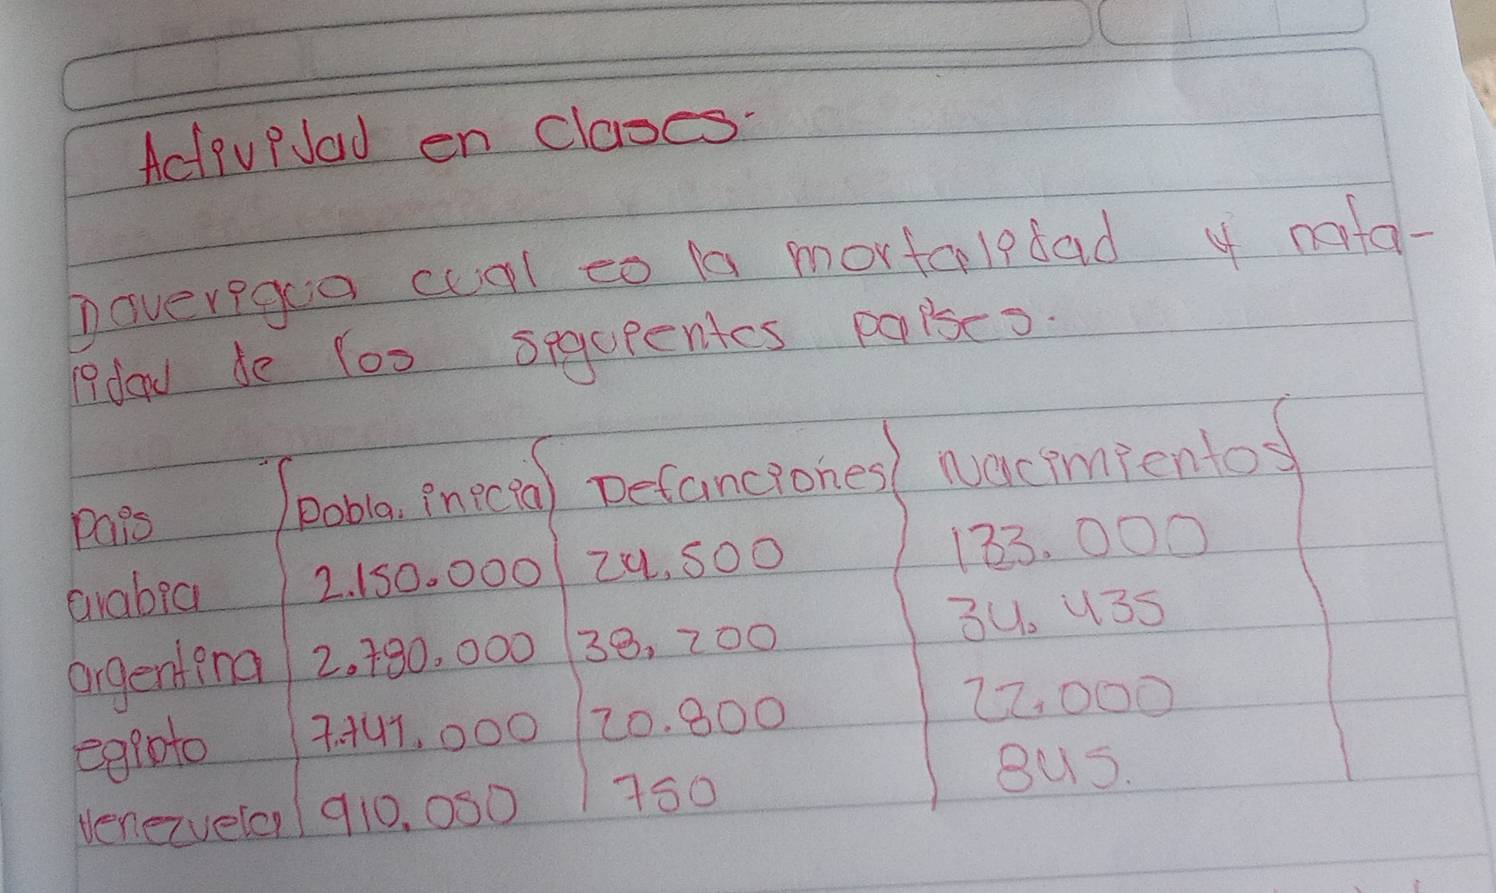 Actividad en clases.
1) averigua cual es la mortalidad y nata-
lidad de los siguientes paises.
Pais Pobla. inicial Defunciones Nacimientos
arabia 2.150.000 24.500 133.000
argentina 2.780.000 38.200 34.435
egipto 7.741.000 20.800 22.000
venezuela 910.050 750 845.